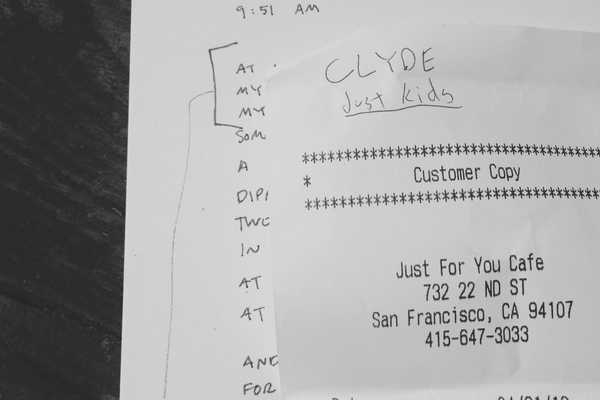 9:51 AM
AT
MY
MY
SOM
A
DIPI
TWE
IN
AT
AT
ANE
FOR
CLYDE
Just Kids
********************************
* Customer Copy
********************************
Just For You Cafe
732 22 ND ST
San Francisco, CA 94107
415-647-3033